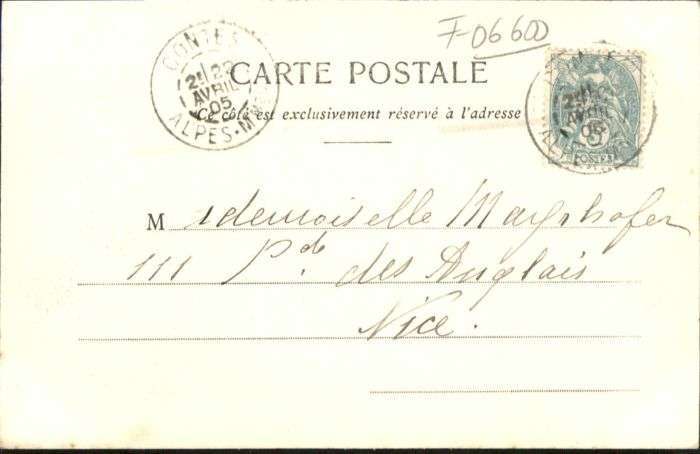 F-06600
CONTES
2E 22
AVRIL
05
ALPES-M
CARTE POSTALE
Ce côté est exclusivement réservé à l'adresse
AVRIL
05
5
POSTES
Mademoiselle Mayrhofer
111 Pde des Anglais
Nice.